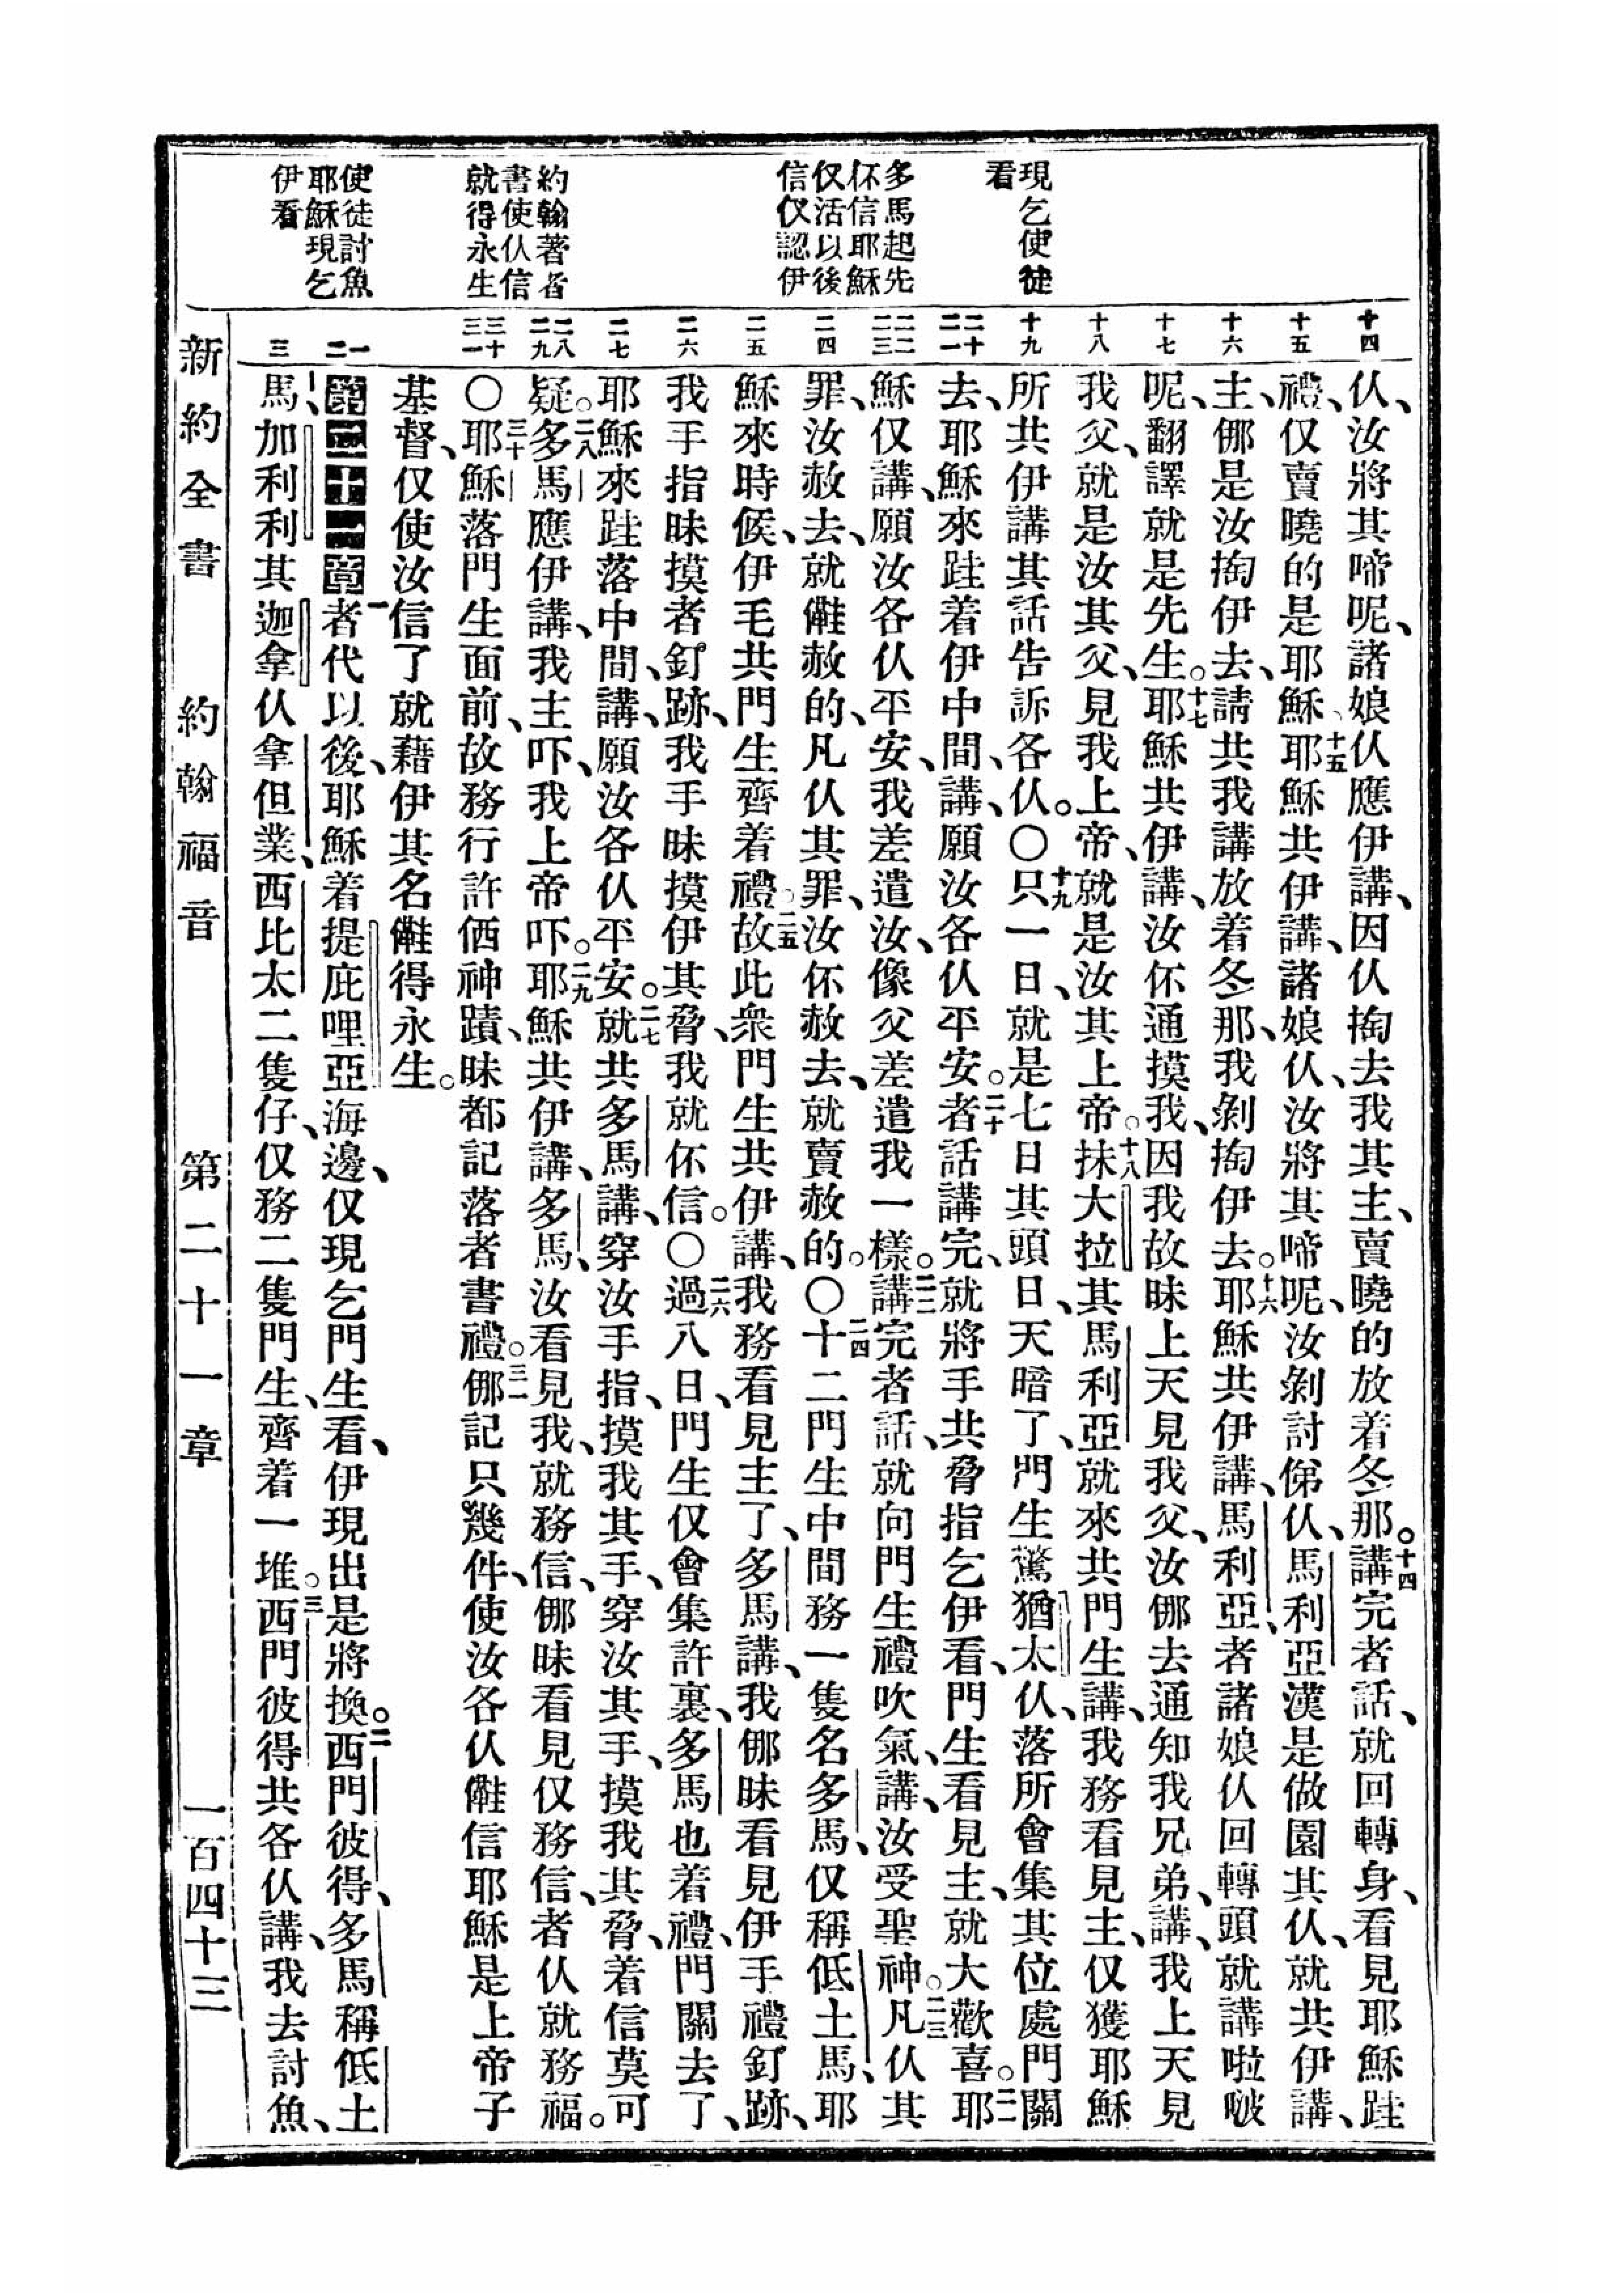 現乞使徒
看
多馬起先
伓信耶穌
仅活以後
信仅認伊
約翰著者
書使仈信
就得永生
使徒討魚
耶穌現乞
伊看
十四
十五
十六
十七
十八
十九
二十
二一
二二
二三
二四
二五
二六
二七
二八
二九
三十
三一
一
二
三
仈、汝將其啼呢、諸娘仈應伊講、因仈掏去我其主、賣曉的放着冬那。十四講完者話、就回轉身、看見耶穌跬
禮、仅賣曉的是耶穌、十五耶穌共伊講、諸娘仈、汝將其啼呢、汝剝討俤仈、馬利亞漢是做園其仈、就共伊講、
主、倻是汝掏伊去、請共我講放着冬那、我剝掏伊去。十六耶穌共伊講、馬利亞、者諸娘仈回轉頭就講啦啵
呢、翻譯就是先生。十七耶穌共伊講、汝伓通摸我、因我故昧上天見我父、汝倻去通知我兄弟、講、我上天見
我父、就是汝其父、見我上帝、就是汝其上帝。十八抹大拉其馬利亞就來共門生講、我務看見主、仅獲耶穌
所共伊講其話告訴各仈。〇十九只一日、就是七日其頭日、天暗了、門生驚猶太仈、落所會集其位處門關
去、耶穌來跬着伊中間、講、願汝各仈平安。二十者話講完、就將手共脅指乞伊看、門生看見主、就大歡喜。二一耶
穌仅講、願汝各仈平安、我差遣汝、像父差遣我一樣。二二講完者話、就向門生禮吹氣、講、汝受聖神。二三凡仈其
罪、汝赦去、就𠆧赦的、凡仈其罪、汝伓赦去、就賣赦的。〇二四十二門生中間務一隻名多馬、仅稱低土馬、耶
穌來時候、伊毛共門生齊着禮。二五故此衆門生共伊講、我務看見主了、多馬講、我倻昧看見伊手禮釘跡、
我手指昧摸者釘跡、我手昧摸伊其脅、我就伓信。〇二六過八日、門生仅會集許裏、多馬也着禮、門關去了、
耶穌來跬落中間、講、願汝各仈平安。二七就共多馬講、穿汝手指、摸我其手、穿汝其手、摸我其脅、着信莫可
疑。二八多馬應伊講、我主吓、我上帝吓。二九耶穌共伊講、多馬、汝看見我、就務信、倻昧看見仅務信、者仈就務福。
〇三十耶穌落門生面前、故務行許俩神蹟、昧都記落者書禮。三一倻記只幾件、使汝各仈𠆧信耶穌是上帝子
基督、仅使汝信了就藉伊其名𠆧得永生。
第二十一章一者代以後、耶穌着提庇哩亞海邊、仅現乞門生看、伊現出是將換。二西門彼得、多馬稱低土
馬、加利利其迦拿仈拿但業、西比太二隻仔、仅務二隻門生、齊着一堆。三西門彼得共各仈講、我去討魚、
新約全書 約翰福音 第二十一章 一百四十三